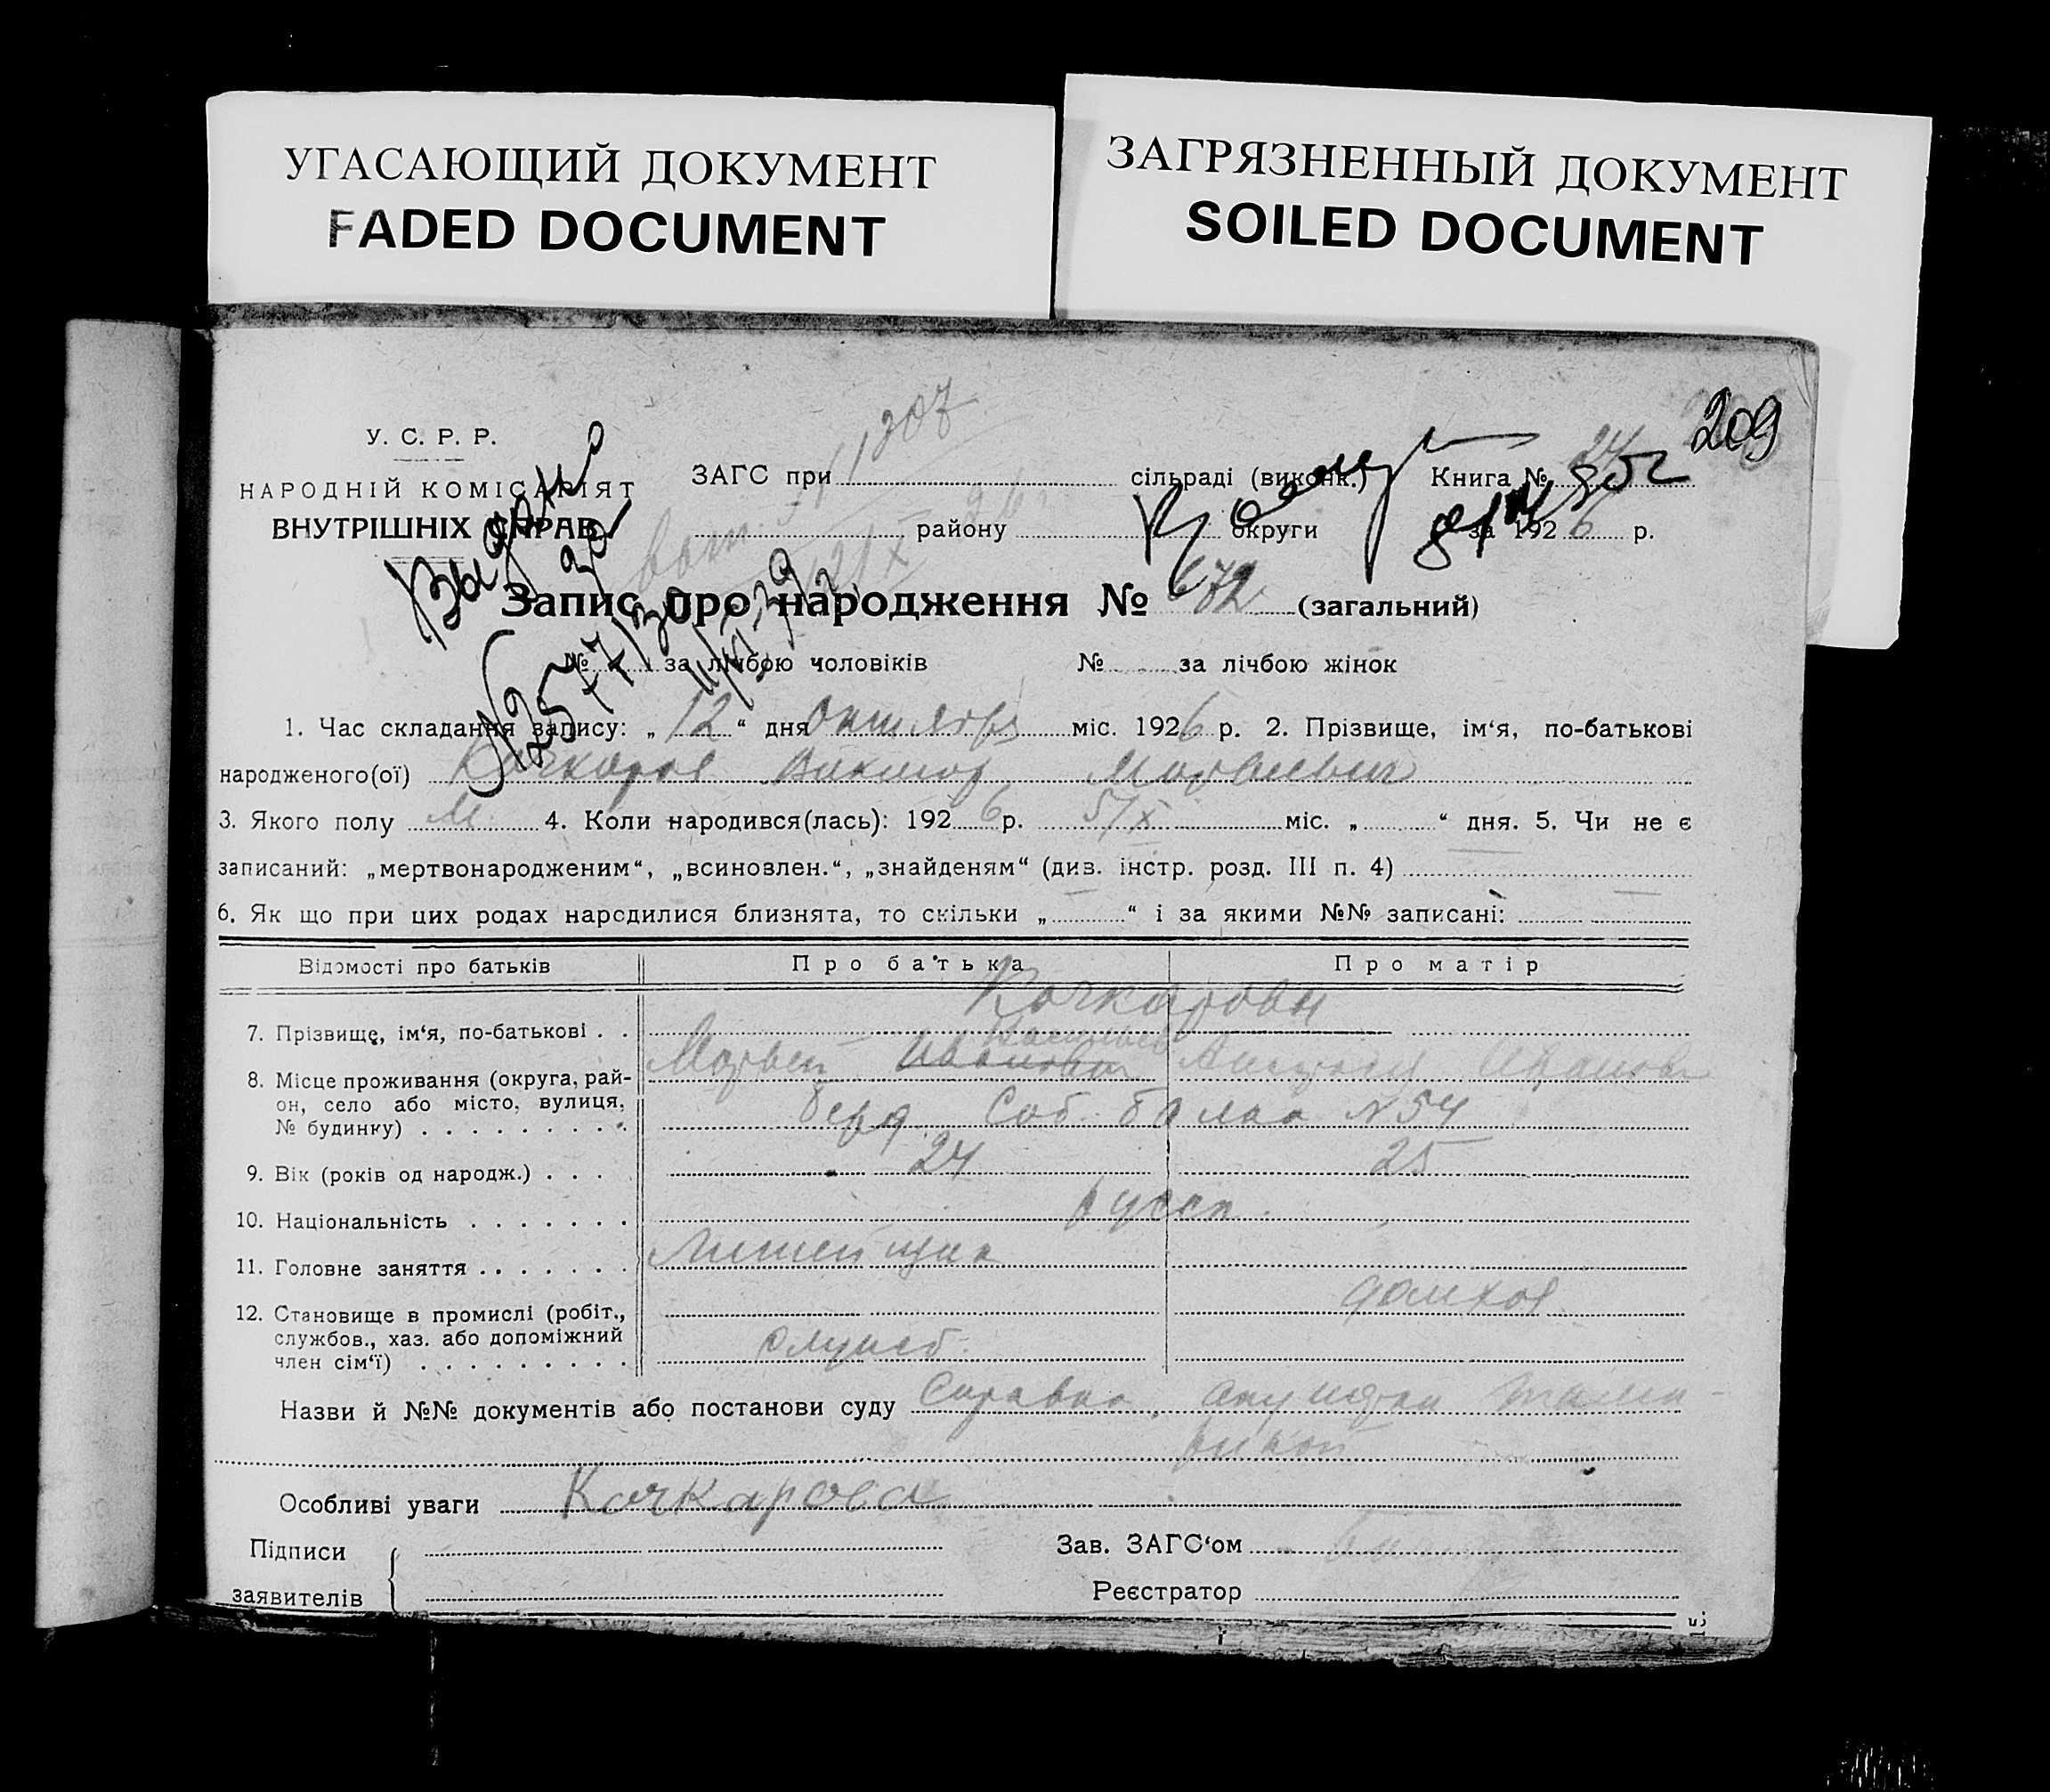 УГАСАЮЩИЙ ДОКУМЕНТ
FADED DOCUMENT
ЗАГРЯЗНЕННЫЙ ДОКУМЕНТ
SOILED DOCUMENT
209
У. С. Р. Р.
НАРОДНІЙ КОМІСАРІЯТ
ВНУТРІШНІХ СПРАВ
ЗАГС при сільраді (виконк.) Книга № 24
району округи за 1926 р.
Запис про народження № 672 (загальний)
№ за лічбою чоловіків № за лічбою жінок
1. Час складання запису: „12“ дня октября міс. 1926 р. 2. Прізвище, ім‘я, по-батькові
народженого(ої) Кочкаров Виктор Матвеевич
3. Якого полу М. 4. Коли народився(лась): 1926 р. 5/X міс. „ “ дня. 5. Чи не є
записаний: „мертвонародженим“, „всиновлен.“, „знайденям“ (див. інстр. розд. III п. 4)
6. Як що при цих родах народилися близнята, то скільки „ “ і за якими №№ записані:
Відомості про батьків Про батька Про матір
Кочкаровы
7. Прізвище, ім‘я, по-батькові . .
Матвей Иванович
8. Місце проживання (округа, рай-
он, село або місто, вулиця,
№ будинку) . . . . . . . . . Соб. балка №54
9. Вік (років од народж.) . . . 24 25
10. Національність . . . . . . . русск.
11. Головне заняття . . . . . . . Литейщик
домхоз
12. Становище в промислі (робіт.,
службов., хаз. або допоміжний
член сім‘ї) . . . . . . . . . служеб.
Назви й №№ документів або постанови суду Справка
Особливі уваги Кочкарова
Підписи
заявителів
Зав. ЗАГС‘ом
Реєстратор